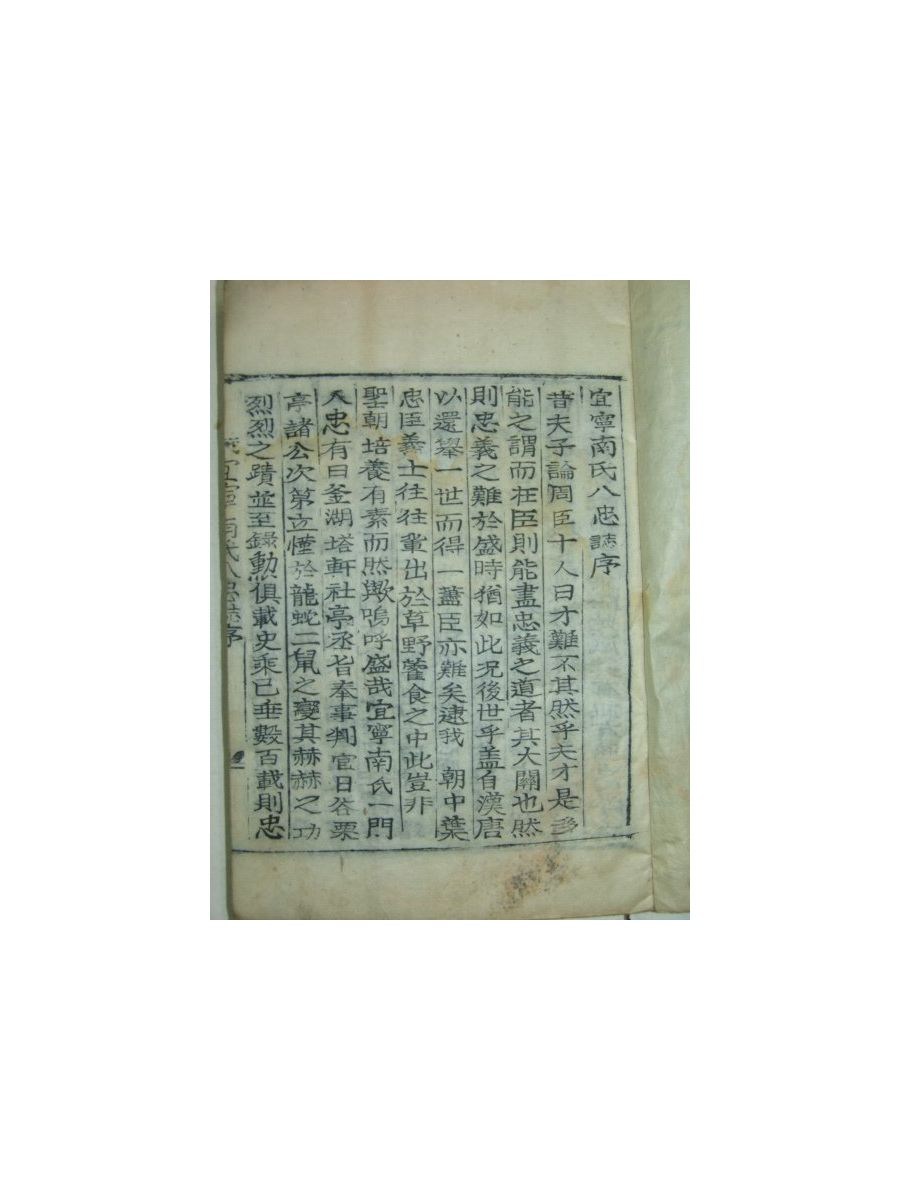 宜寧南氏八忠誌序
昔夫子論周臣十人曰才難不其然乎夫才是多
能之謂而在臣則能盡忠義之道者其大關也然
則忠義之難於盛時猶如此况後世乎盖自漢唐
以還舉一世而得一藎臣亦難矣逮我 朝中葉
忠臣義士往往輩出於草野藿食之中此豈非
聖朝培養有素而然歟嗚呼盛哉宜寧南氏一門
八忠有曰釜湖塔軒社亭丞旨奉事判官日谷栗
亭諸公次第立慬於龍蛇二鼠之變其赫赫之功
烈烈之蹟並至錄勳俱載史乘已垂數百載則忠
宜寧南氏八忠誌序